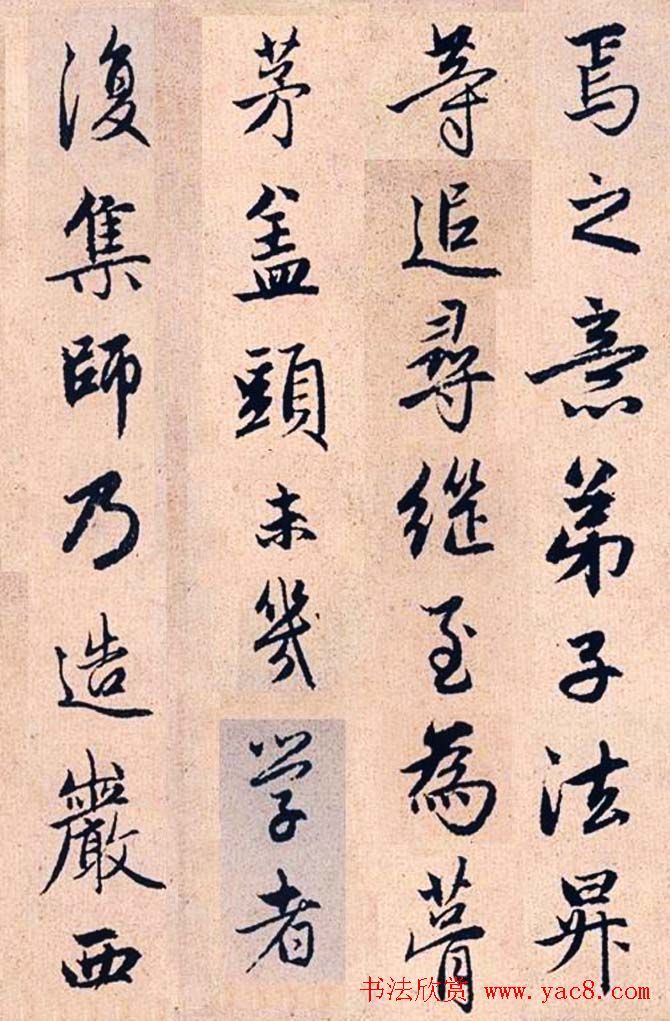 焉之意弟子法昇
等追尋繼至為葺
茅盖頭未幾学者
復集師乃造巖西
书法欣赏 www.yac8.com